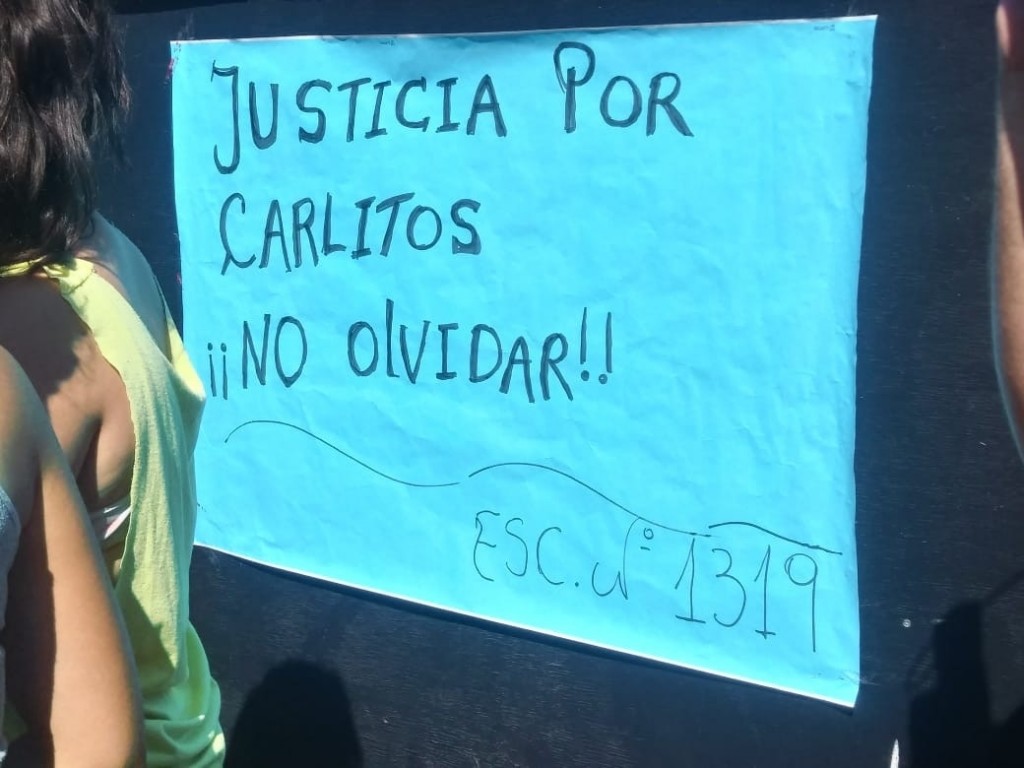 JUSTICIA POR
CARLITOS
¡¡NO OlVIDAR!!
ESC. N° 1319